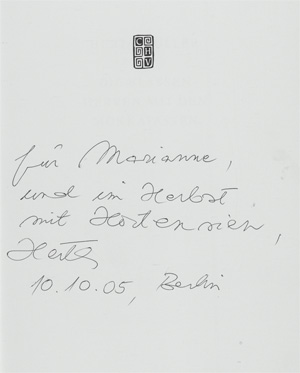 C
H
V
für Marianne,
und im Herbst,
mit Hortensien,
Herta
10.10.05, Berlin